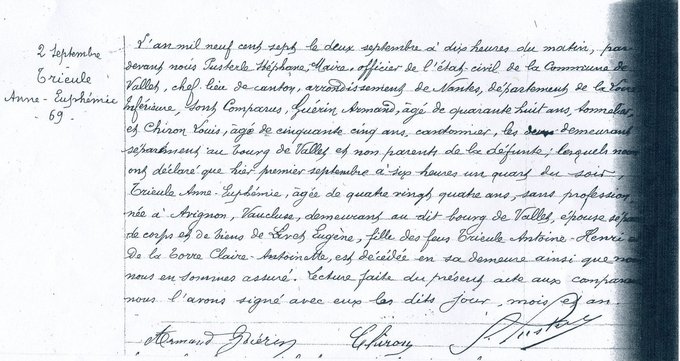 2 Septembre
Trieule
Anne-Euphémie
- 69 -
L'an mil neuf cent sept le deux septembre à dix heures du matin, par
devant nous Pusterle Stéphane, Maire, officier de l'état civil de la Commune de
Vallet, chef lieu de canton, arrondissement de Nantes, département de la Loire
Inférieure, sont Comparus, Guérin Armand, âgé de quarante huit ans, tonnelier,
et Chiron Louis, âgé de cinquante cinq ans, cantonnier, les deux demeurant
séparément au bourg de Vallet et non parents de la défunte; lesquels nous
ont déclaré que hier premier septembre à six heures un quart du soir,
Trieule Anne-Euphémie, âgée de quatre vingt quatre ans, sans profession,
née à Avignon, Vaucluse, demeurant au dit bourg de Vallet, épouse
de corps et de biens de Eugène, fille des feus Trieule Antoine-Henri
De la Torre Claire-Antoinette, est décédée en sa demeure ainsi que nous
nous en sommes assuré. Lecture faite du présent acte aux
nous l'avons signé avec eux les dits jour, mois et an.
Armand Guérin Chiron